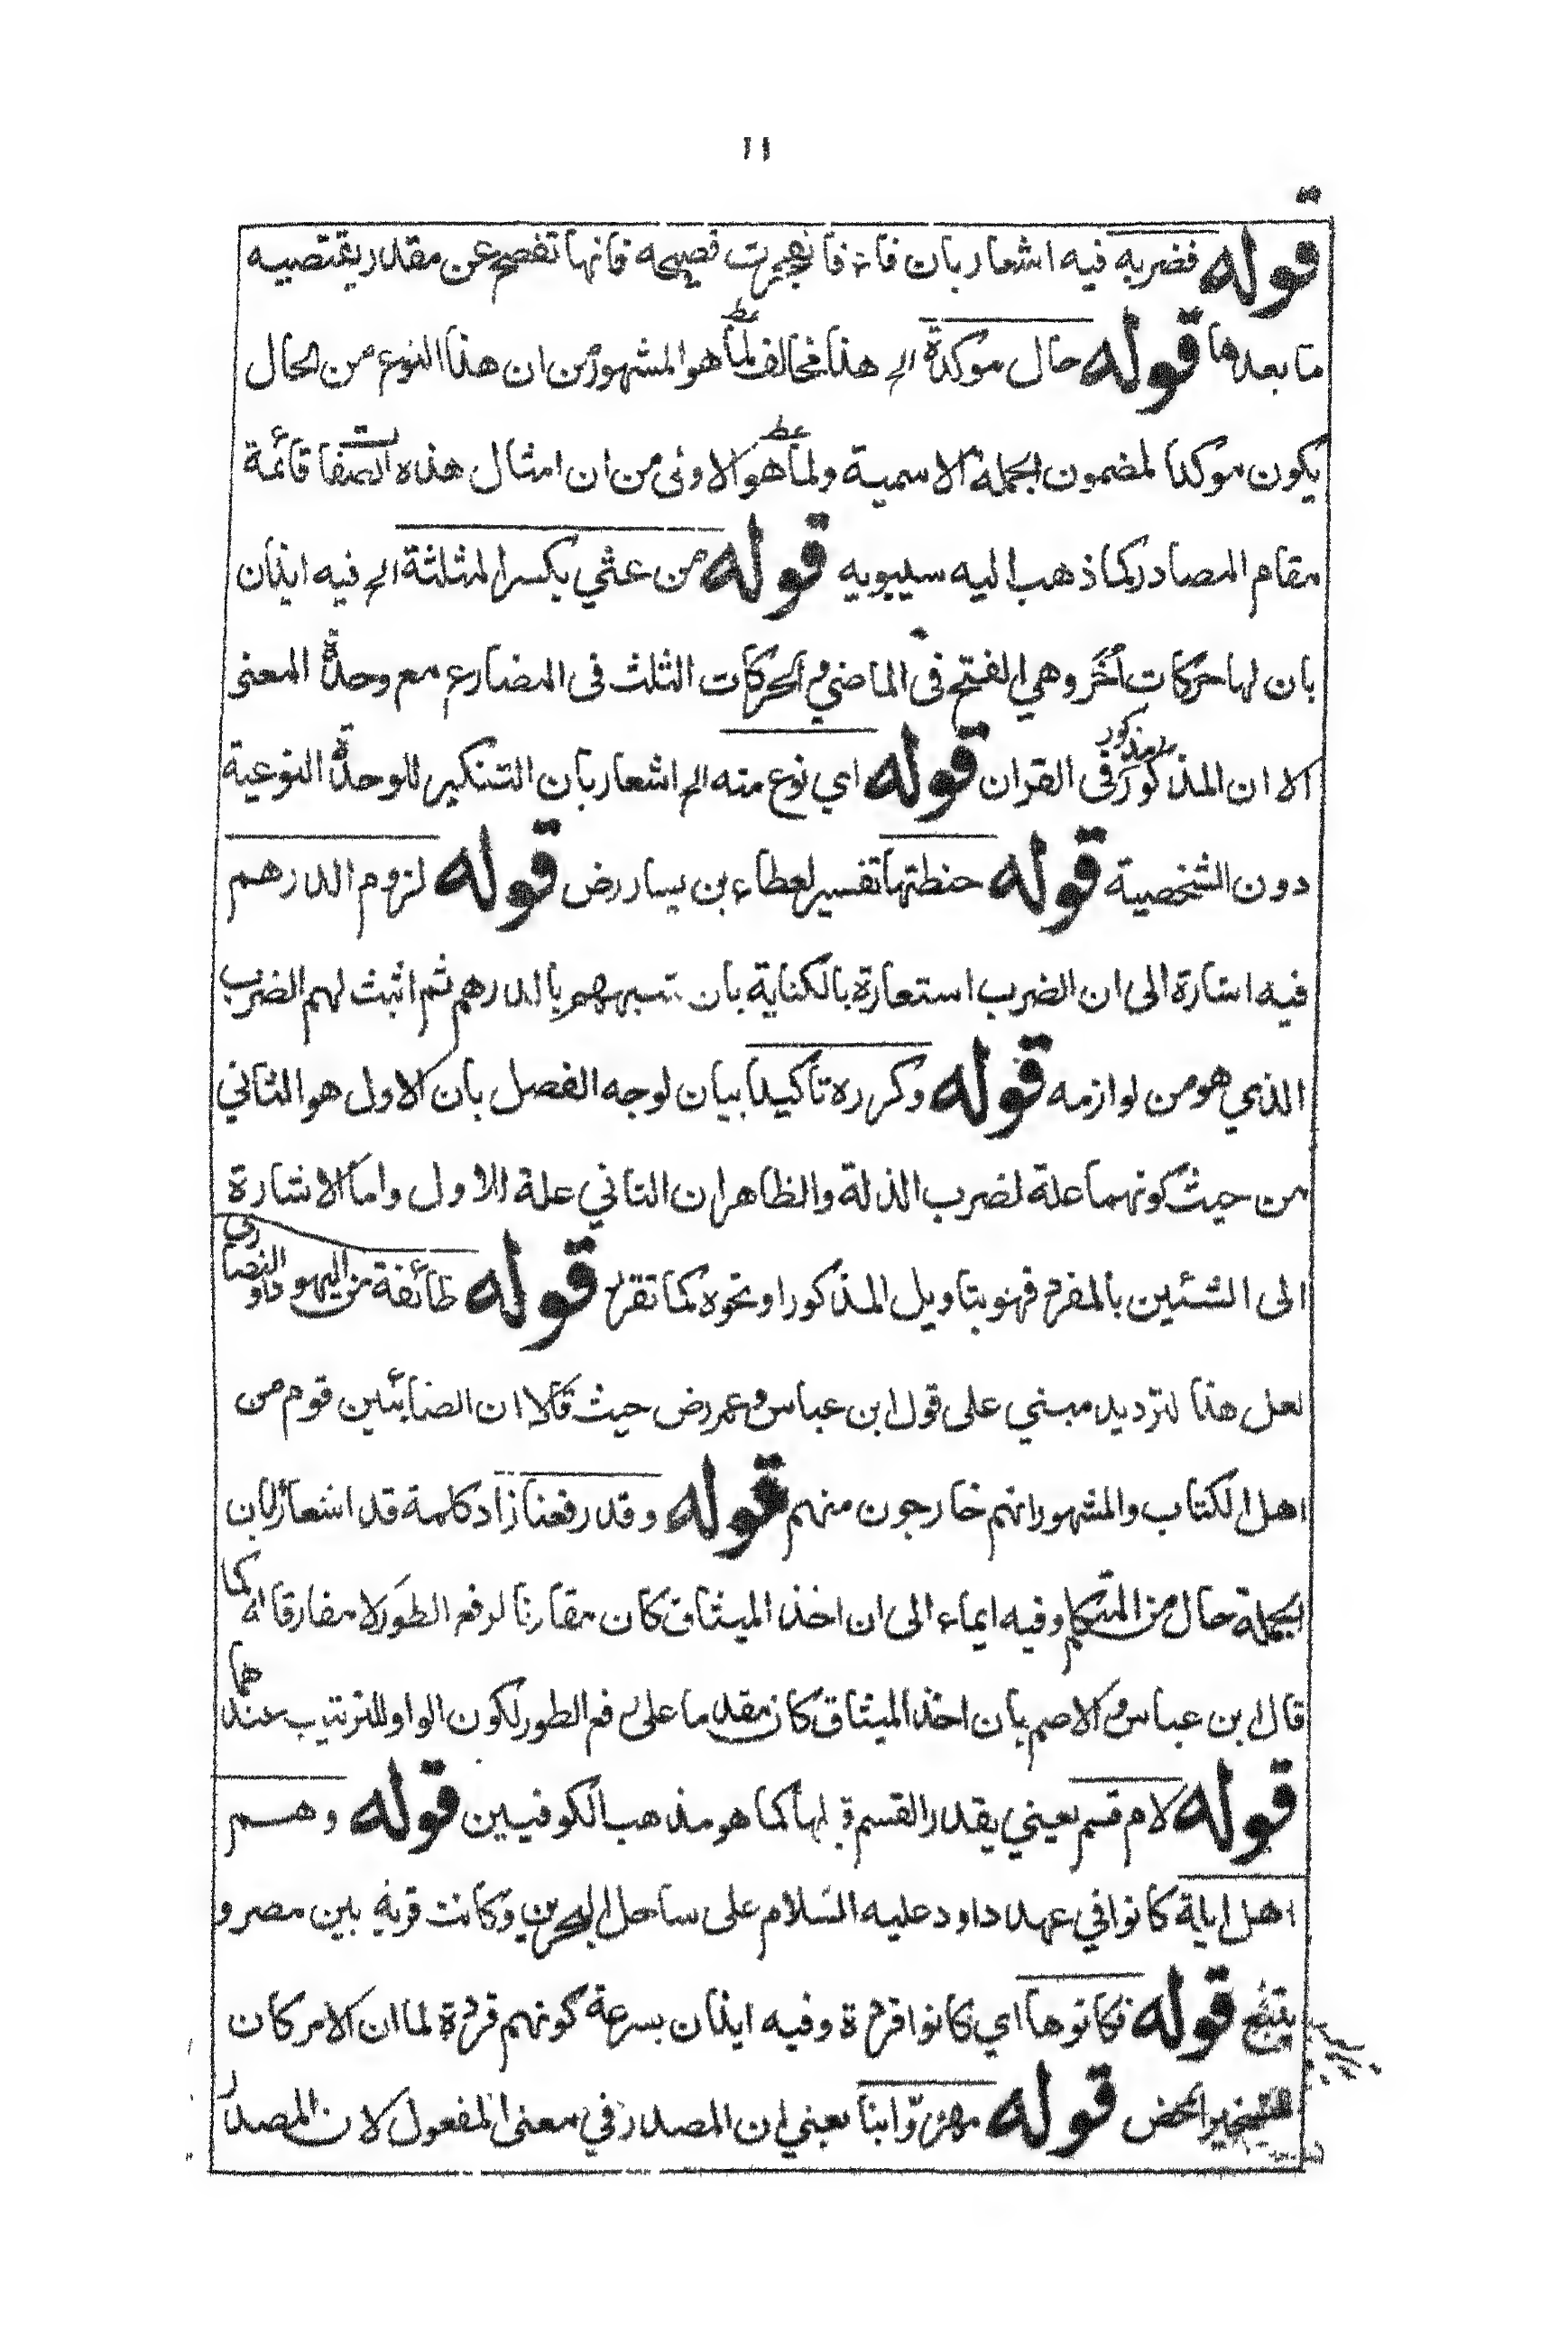 ١١
قوله فضربه فيه اشعار بان فاء فانفجرت فصيحه فانها تفصح عن مقدر يقتضيه
ما بعدها قوله حال موكدة الخ هذا مخالف لما هو المشهور من ان هذا النوع من الحال
يكون موكدا لمضمون الجملة الاسمية ولما هو الاولى من ان امثال هذه الصفات قائمة
مقام المصادر كما ذهب اليه سيبويه قوله من عثي بكسر المثلثة الخ فيه ايذان
بان لها حركات اُخَر وهي الفتح في الماضي والحركات الثلث في المضارع مع وحدة المعنى
الا ان المذكور في القران قوله اي نوع منه الخ اشعار بان التنكير للوحدة النوعية
دون الشخصية قوله حنطتها تفسير لعطاء بن يسار رض قوله لزوم الدرهم
فيه اشارة الى ان الضرب استعارة بالكناية بان شبههم بالدرهم ثم اثبت لهم الضرب
الذي هو من لوازمه قوله وكرره تأكيدا بيان لوجه الفصل بان الاول هو الثاني
من حيث كونهما علة لضرب الذلة والظاهر ان الثاني علة للاول واما الاشارة
الى الشئين بالمفرد فهو بتاويل المذكور او نحوه كما تقرر قوله طائفة من اليهود او النصارى
لعل هذا لترديد مبني على قول ابن عباس وعمر رض حيث قالا ان الصابئين قوم من
اهل الكتاب والمشهور انهم خارجون منهم قوله وقد رفعنا زاد كلمة قد اشعارا بان
الجملة حال من المتكلم وفيه ايماء الى ان اخذ الميثاق كان مقارنا لرفع الطور لا مفارقا له كما
قال ابن عباس والاصم بان اخذ الميثاق كان مقدما على رفع الطور لكون الواو للترتيب عندهما
قوله لام قسم يعني يقدر القسم قبلها كما هو مذهب الكوفيين قوله وهم
اهل ايلة كانوا في عهد داود عليه السلام على ساحل البحر بين وكانت قرية بين مصر و
ينبع قوله فكانوها اي كانوا قردة وفيه ايذان بسرعة كونهم قردة لما ان الامر كان
للتسخير المحض قوله مهزوّا بنا يعني ان المصدر في معنى المفعول لان المصدر